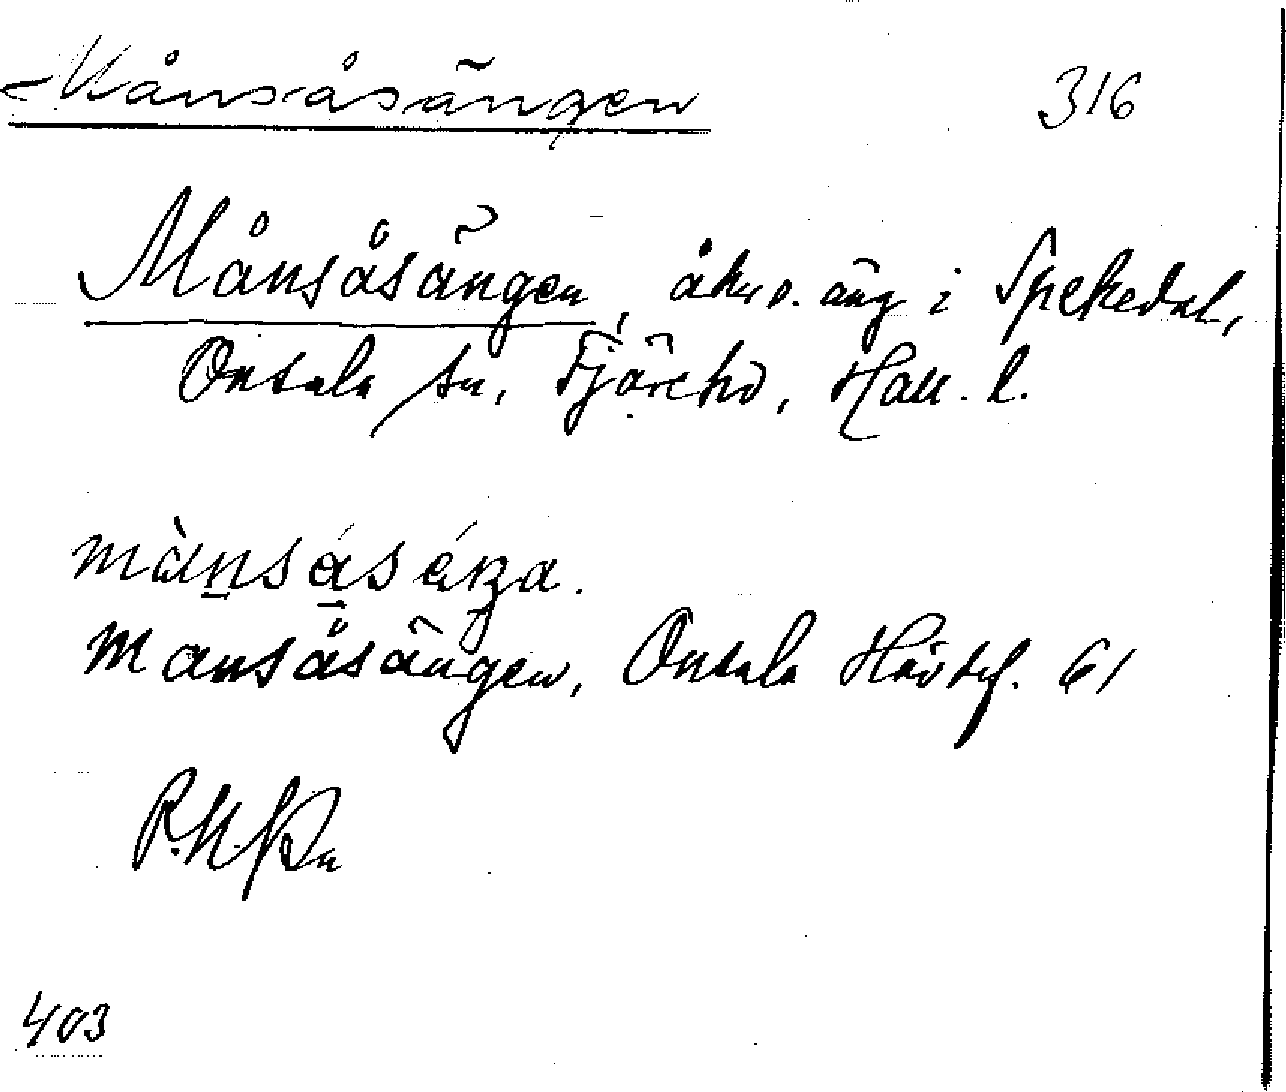 Månsåsängen 316
Månsåsängen, åker o. äng i Spekedal,
Onsala sn, Fjäre hd, Hall. l.
mànsásáŋa.
Mansåsängen, Onsala Hävdsf. 61
403